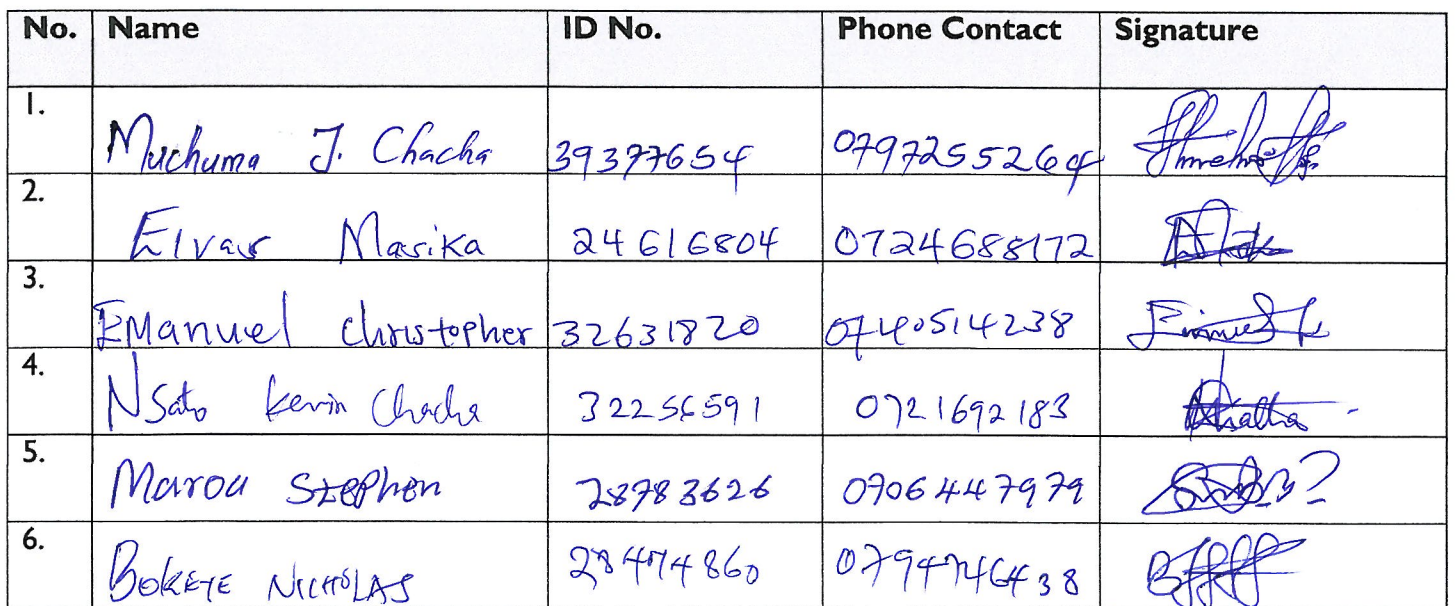 No. Name ID No. Phone Contact Signature
1. Muchuma J. Chacha 39377654 0797255264
2. Elvas Masika 24616804 0724688172
3. EManuel Christopher 32631820 0740514238
4. NSato Kevin Chacha 32256591 0721692183
5. Maroa Stephen 28783626 0706447979
6. BOKEYE NICHOLAS 28474860 0794746438